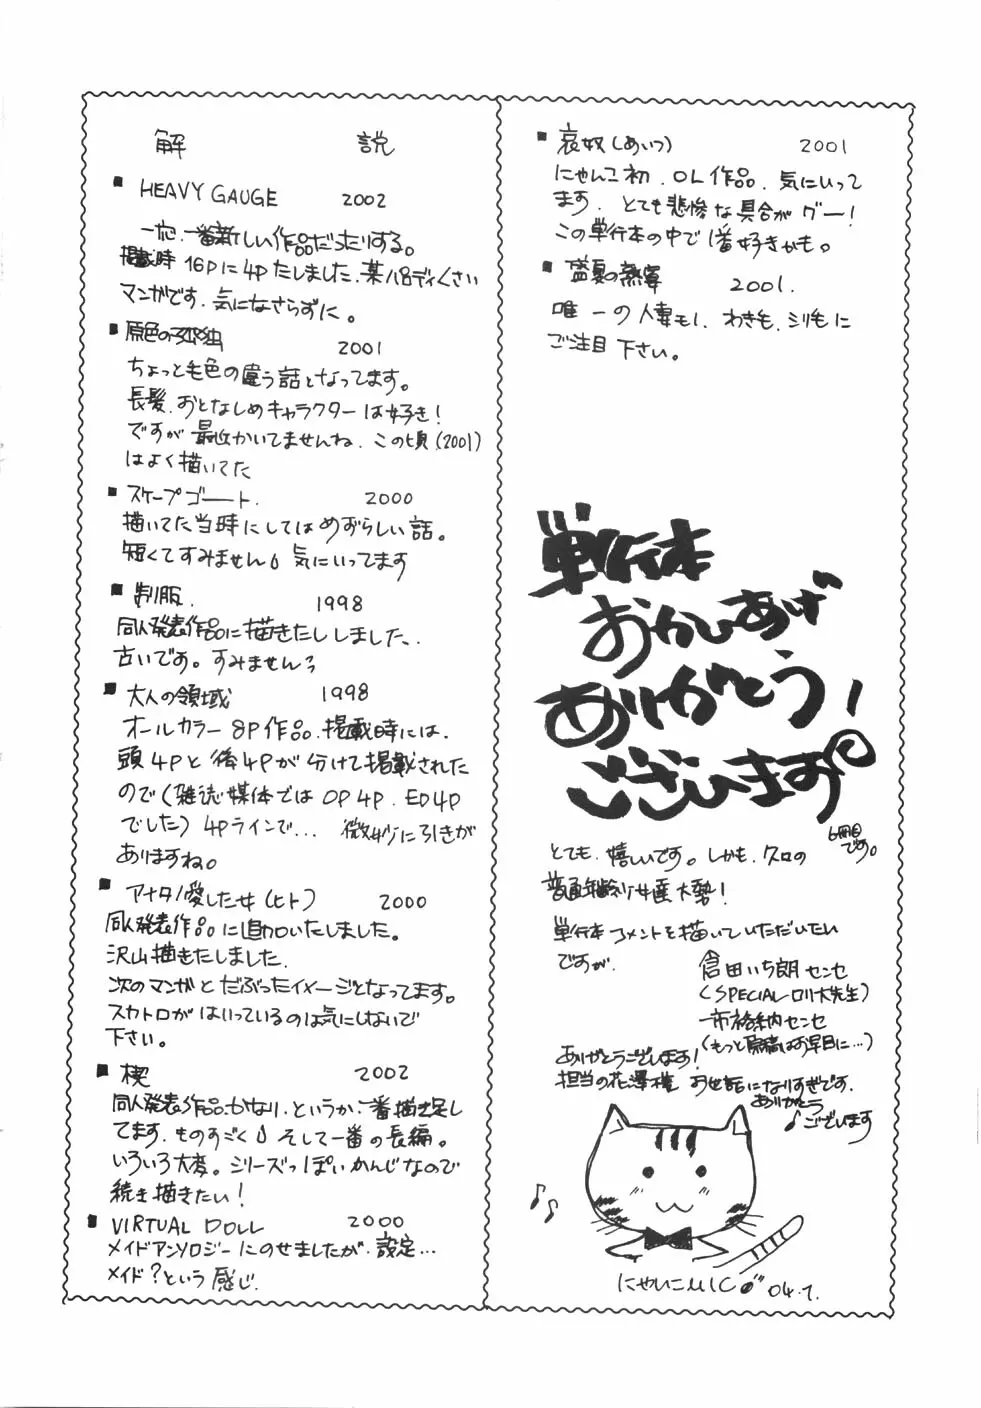 解 説
■ HEAVY GAUGE 2002
一応、一番新しい作品だったりする。
掲載時16Pに4Pたしました、某パロディくさい
マンガです、気になさらずに。
■ 原色の孤独 2001
ちょっと毛色の違う話となってます。
長髪、おとなしめキャラクターは好き！
ですが最近かいてませんね、この頃(2001)
はよく描いてた
■ スケープゴート. 2000
描いてた当時にしてはめずらしい話。
短くてすみません 気にいってます
■ 制服. 1998
同人発表作品に描きたししました、
古いです。すみません
■ 大人の領域 1998
オールカラー8P作品、掲載時には、
頭4Pと後4Pが分けて掲載された
ので(雑誌媒体ではOP4P、ED4P
でした)4Pラインで… 微妙に引きが
ありますね。
■ アナタノ愛した女(ヒト) 2000
同人発表作品に追加いたしました。
沢山描きたしました.
次のマンガとだぶったイメージとなってます。
スカトロがはいっているのは気にしないで
下さい。
■ 楔 2002
同人発表作品、かなり、というか、一番描き足し
てます、ものすごく そして一番の長編。
いろいろ大変。シリーズっぽいかんじなので
続き描きたい！
■ VIRTUAL DOLL 2000
メイドアンソロジーにのせましたが、設定…
メイド?という感じ.
■ 哀奴(あいつ) 2001
にゃんこ初、OL作品、気にいって
ます、とても悲惨な具合がグー！
この単行本の中で1番好きかも。
■ 盛夏の熱宴 2001.
唯一の人妻モノ、わきも、シリもに
ご注目下さい。
単行本
おかいあげ
ありがとう！
ございます
6冊目
です。
とても、嬉しいです。しかも、クロの
単行本コメントを描いていただいたい
ですが、
倉田いち朗センセ
(SPECIALロリ大先生)
市格納センセ
(もっと原稿はお早目に…)
ありがとうございます！
担当の花澤様、お世話になりすぎです、
ありがとう
♪ございます
にゃんこMIC 04.7.